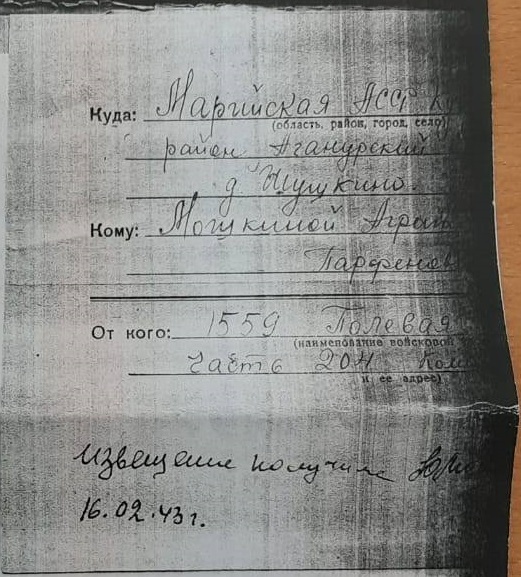 Куда: Марийская АССР
(область, район, город, село)
район Аганурский
д. Шушкино.
Кому: Мошкиной
Парфенов
От кого: 1559 Полевая
(наименование войсковой
часть 204
и ее адрес)
извещение получила
16.02.43 г.